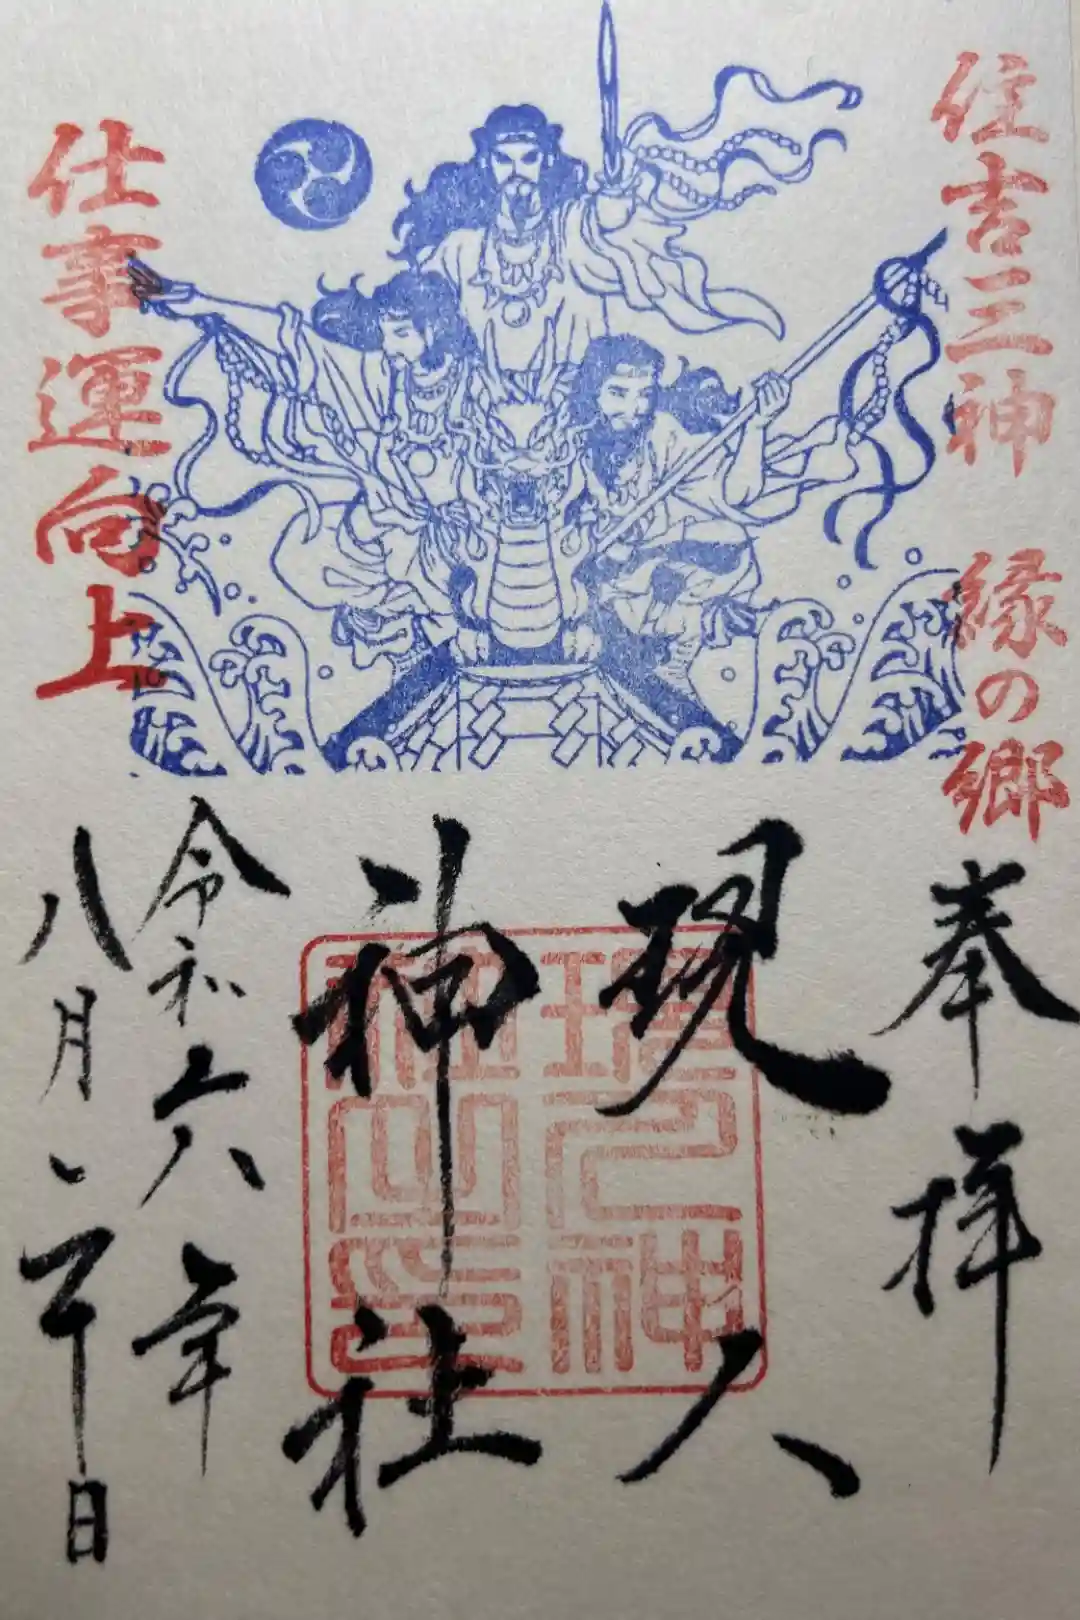 住吉三神 縁の郷
仕事運向上
奉拝
現人
神社
現人神
社之印
令和六年
八月二十日